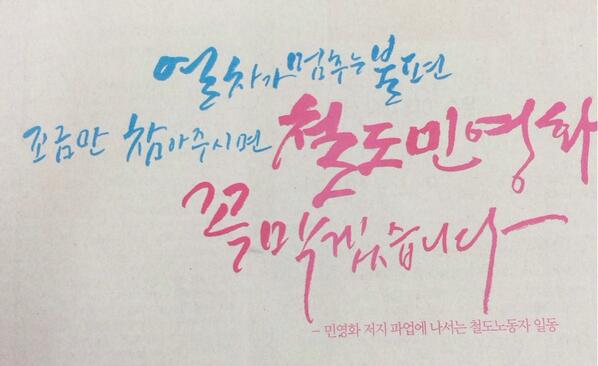 열차가 멈추는 불편
조금만 참아주시면 철도민영화
꼭 막겠습니다
- 민영화 저지 파업에 나서는 철도노동자 일동